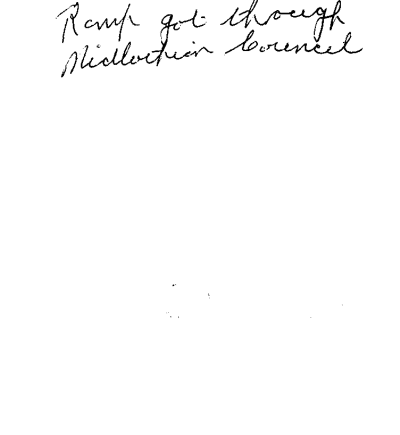 Ramp got through
Midlothian Council